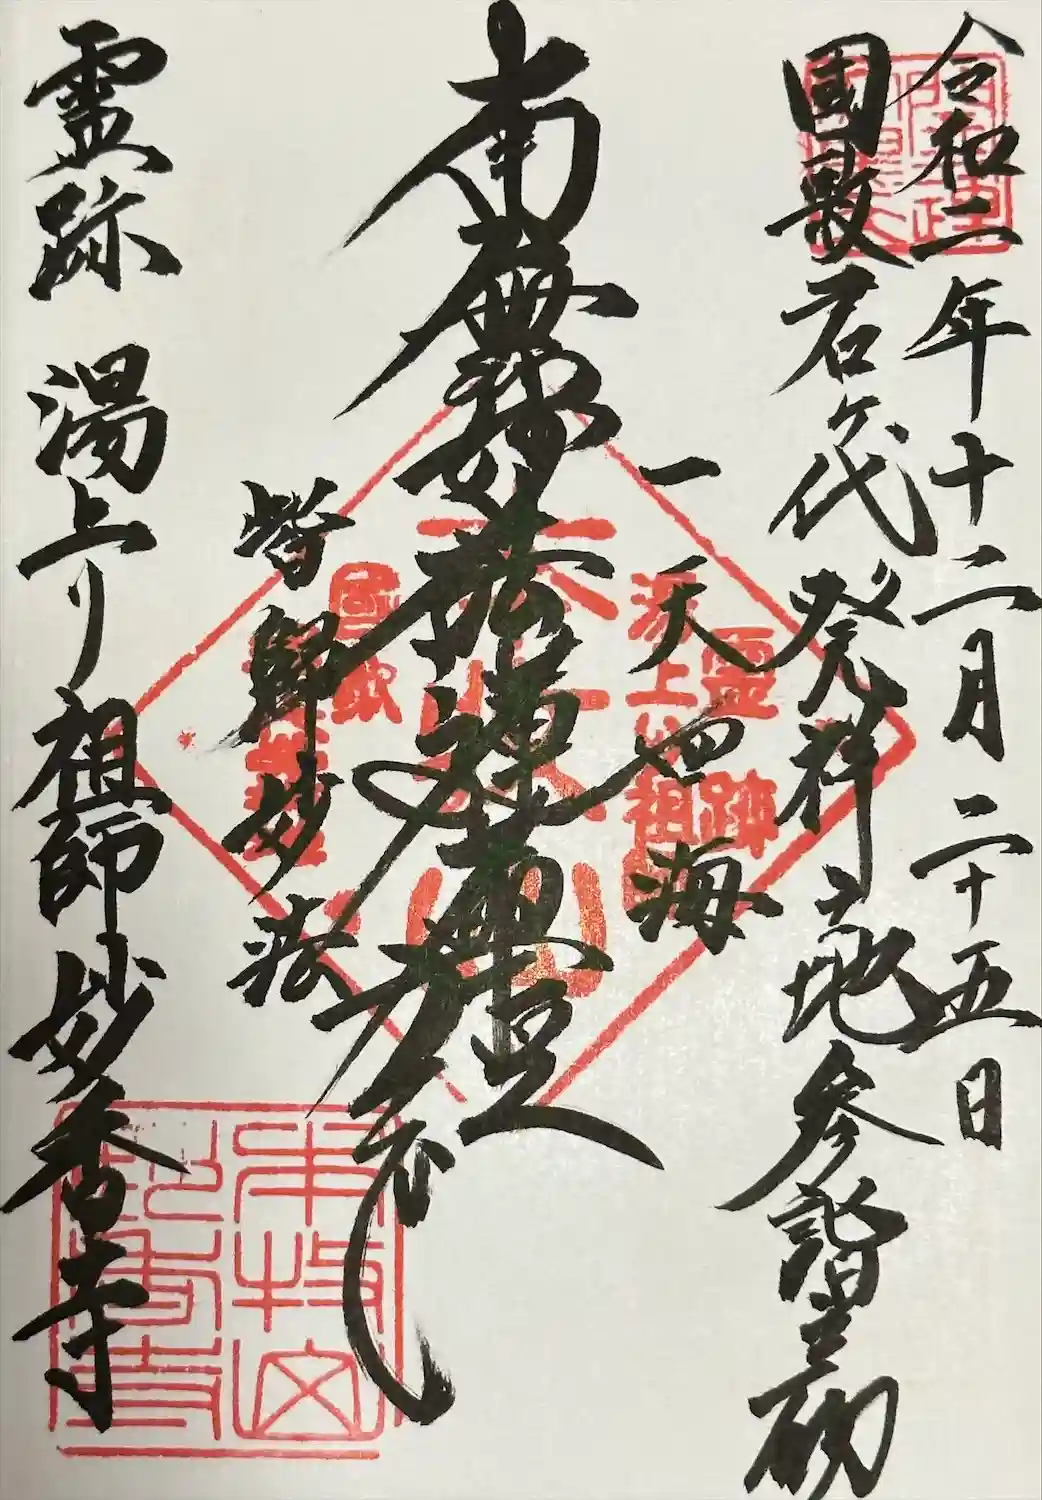 令和二年十二月二十五日
國歌君ヶ代発祥之地参詣之砌
一天四海
南無妙法蓮華経
皆歸妙法
霊跡 湯上り祖師 妙香寺
霊跡
湯上り祖師
國歌
本牧山
妙香寺